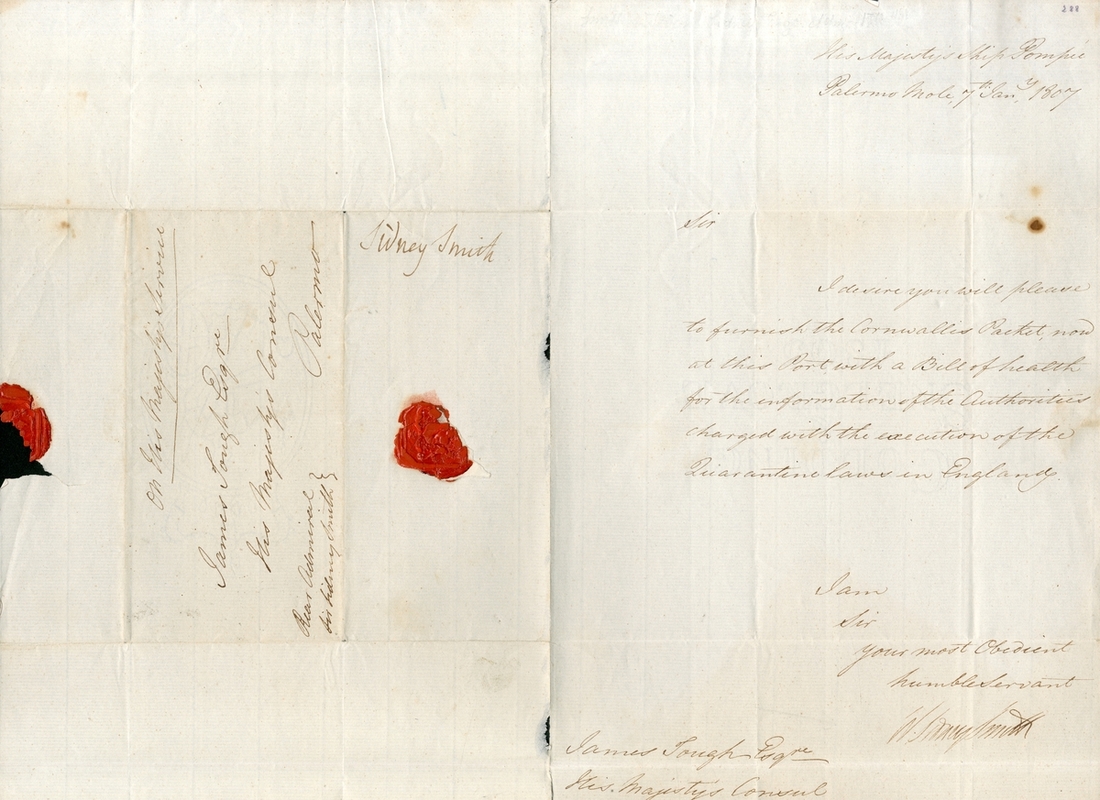 On His Majestys Service
James Tough Esqre
His Majestys Consul
Palermo
Rear Admiral
Sir Sidney Smith
Sidney Smith
288
His Majestys Ship Pompée
Palermo Mole, 7th Jany. 1807
Sir
I desire you will please
to furnish the Cornwallis Packet, now
at this Port with a Bill of health
for the information of the Authorities
charged with the execution of the
Quarantine laws in England.
I am
Sir
your most Obedient
humble Servant
W. Sidney Smith
James Tough Esqre
His Majestys Consul